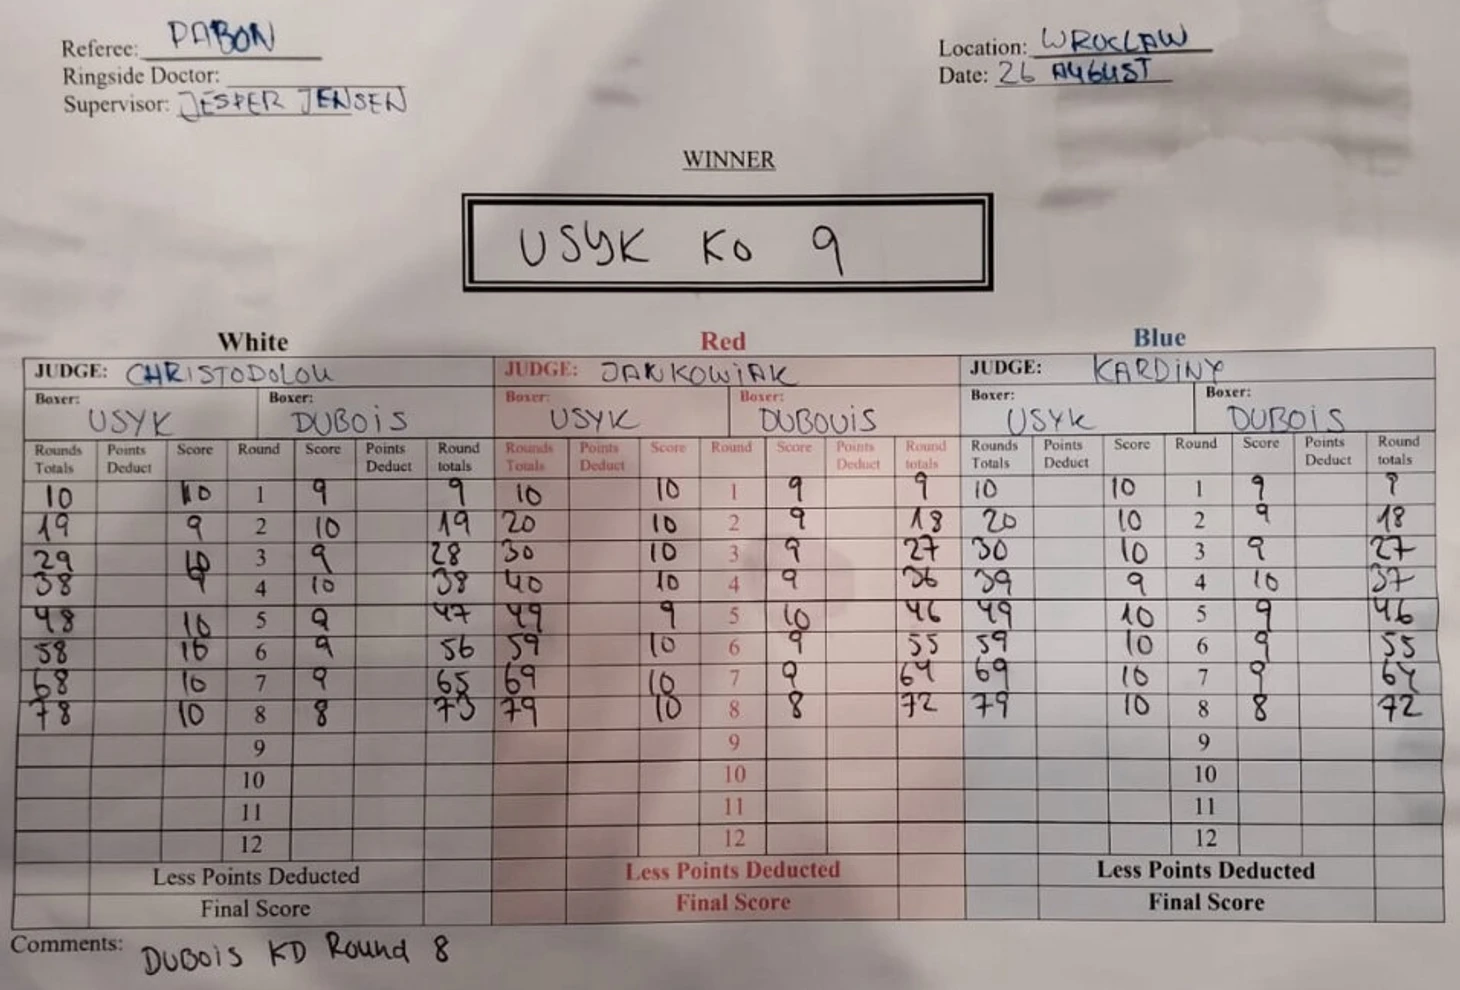 Referee: PABON
Location: WROCLAW
Ringside Doctor:
Date: 26 AUGUST
Supervisor: JESPER JENSEN
WINNER
USYK KO 9
White Red Blue
JUDGE: CHRISTODOLOU JUDGE: JANKOWIAK JUDGE: KARDINY
Boxer: Boxer: Boxer: Boxer: Boxer: Boxer:
USYK DUBOIS USYK DUBOUIS USYK DUBOIS
Rounds Points Score Round Score Points Round Rounds Points Score Round Score Points Round Rounds Points Score Round Score Points Round
Totals Deduct Deduct totals Totals Deduct Deduct totals Totals Deduct Deduct totals
10 10 1 9 9 10 10 1 9 9 10 10 1 9 9
19 9 2 10 19 20 10 2 9 18 20 10 2 9 18
29 10 3 9 28 30 10 3 9 27 30 10 3 9 27
38 9 4 10 38 40 10 4 9 36 39 9 4 10 37
48 10 5 9 47 49 9 5 10 46 49 10 5 9 46
58 10 6 9 56 59 10 6 9 55 59 10 6 9 55
68 10 7 9 65 69 10 7 9 64 69 10 7 9 64
78 10 8 8 73 79 10 8 8 72 79 10 8 8 72
9 9 9
10 10 10
11 11 11
12 12 12
Less Points Deducted Less Points Deducted Less Points Deducted
Final Score Final Score Final Score
Comments: DUBOIS KD Round 8